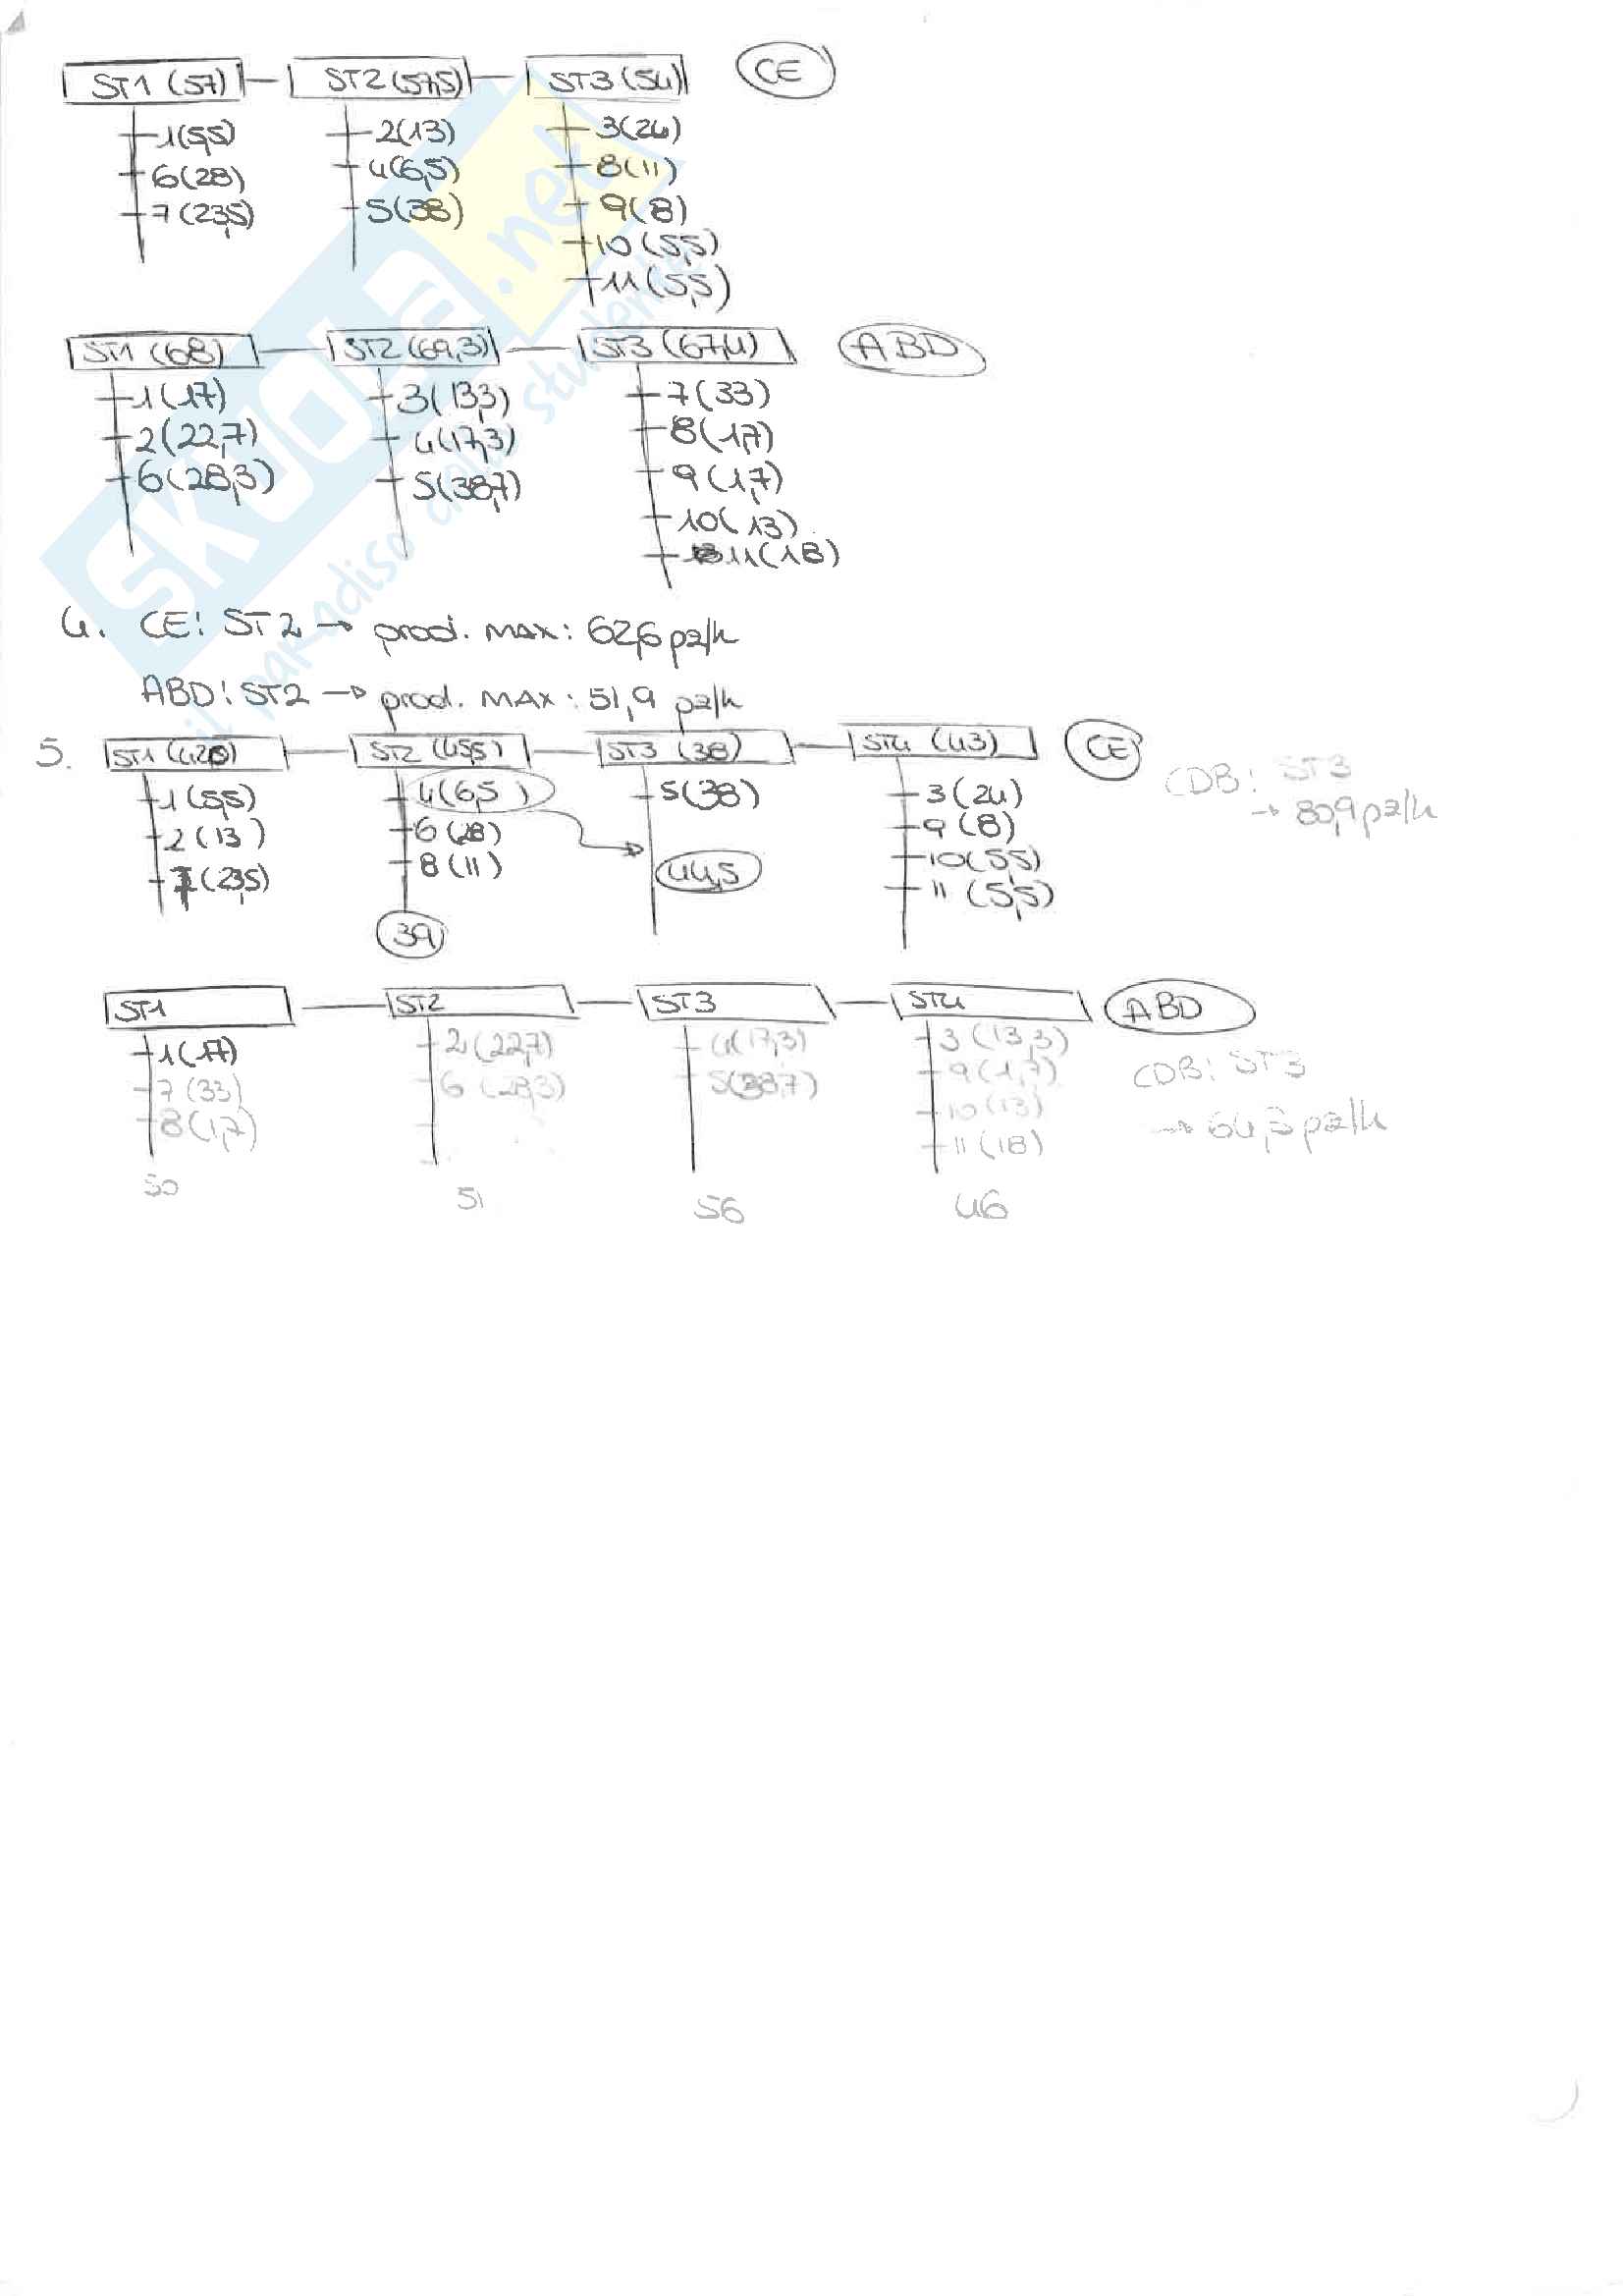 ST1 (57) ST2 (57,5) ST3 (54) CE
1(5,5) 2(13) 3(24)
6(28) 4(6,5) 8(11)
7(23,5) 5(38) 9(8)
10(5,5)
11(5,5)
ST1 (68) ST2 (69,3) ST3 (67,4) ABD
1(17) 3(13,3) 7(33)
2(22,7) 4(17,3) 8(1,7)
6(28,3) 5(38,7) 9(1,7)
10(13)
11(18)
4. CE: ST2 → prod. MAX: 62,6 pz/h
ABD: ST2 → prod. MAX: 51,9 pz/h
5. ST1 (42) ST2 (45,5) ST3 (38) ST4 (43) CE
1(5,5) 4(6,5) 5(38) 3(24) CDB: ST3
2(13) 6(28) 9(8) → 80,9 pz/h
7(23,5) 8(11) 44,5 10(5,5)
11(5,5)
39
ST1 ST2 ST3 ST4 ABD
1(17) 2(22,7) 4(17,3) 3(13,3)
7(33) 6(28,3) 5(38,7) 9(1,7) CDB: ST3
8(1,7) 10(13) → 64,3 pz/h
11(18)
50 51 56 46
skuola.net
il paradiso dello studente